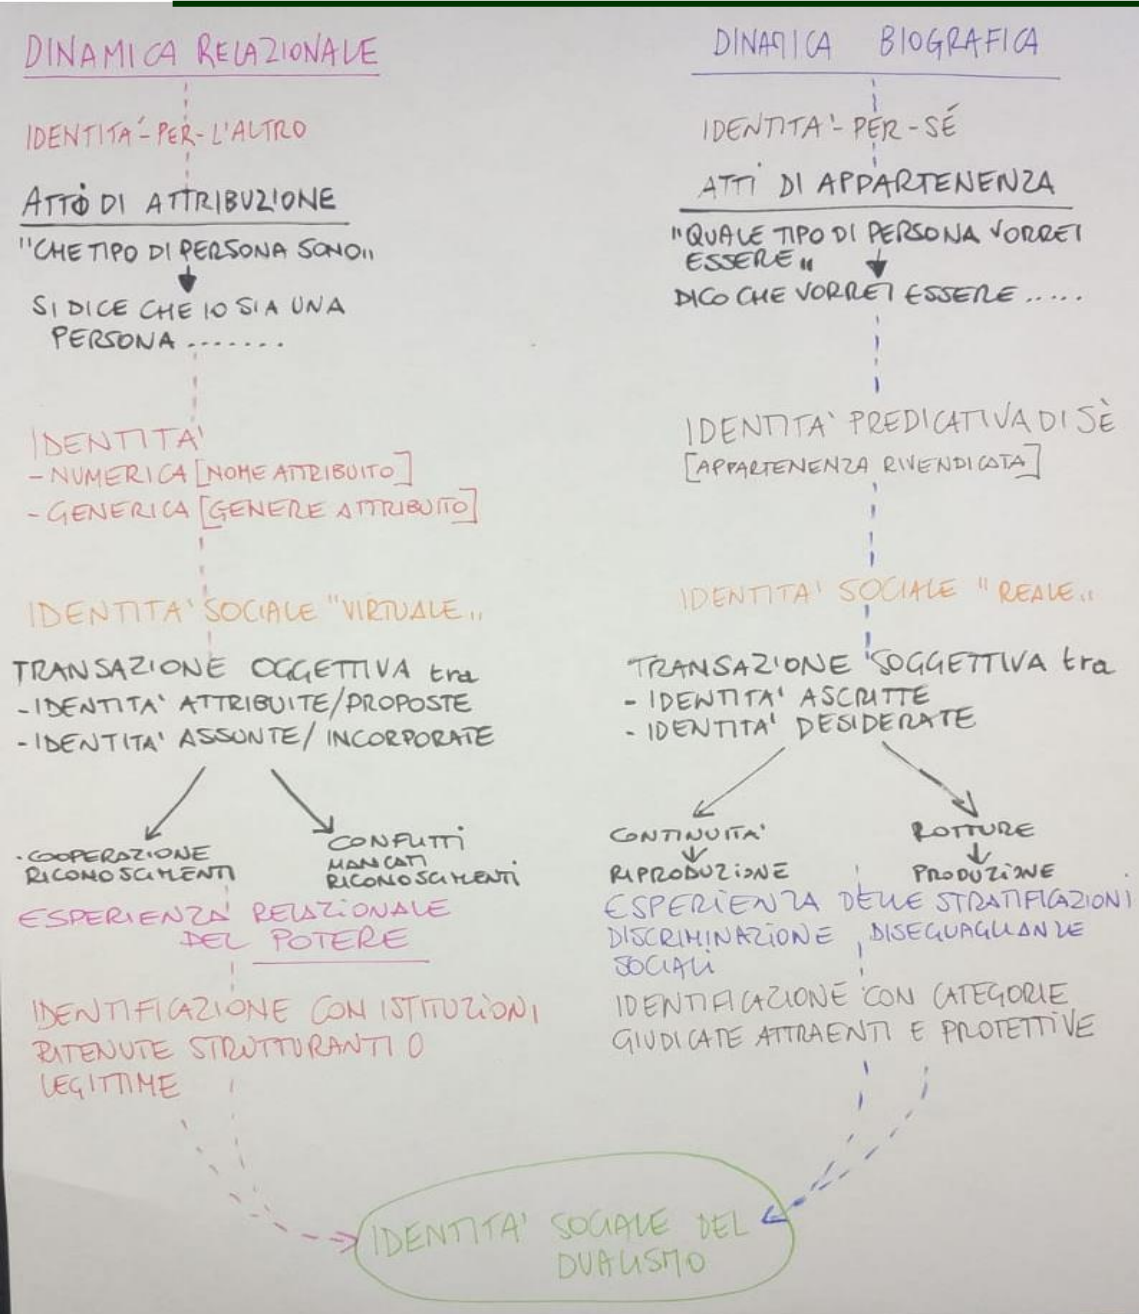 DINAMICA RELAZIONALE
IDENTITA'-PER-L'ALTRO
ATTO DI ATTRIBUZIONE
"CHE TIPO DI PERSONA SONO"
SI DICE CHE IO SIA UNA
PERSONA .......
IDENTITA'
- NUMERICA [NOME ATTRIBUITO]
- GENERICA [GENERE ATTRIBUITO]
IDENTITA' SOCIALE "VIRTUALE"
TRANSAZIONE OGGETTIVA tra
- IDENTITA' ATTRIBUITE/PROPOSTE
- IDENTITA' ASSUNTE/INCORPORATE
COOPERAZIONE
RICONOSCIMENTI
CONFLITTI
MANCATI
RICONOSCIMENTI
ESPERIENZA RELAZIONALE
DEL POTERE
IDENTIFICAZIONE CON ISTITUZIONI
RITENUTE STRUTTURANTI O
LEGITTIME
DINAMICA BIOGRAFICA
IDENTITA'-PER-SÉ
ATTI DI APPARTENENZA
"QUALE TIPO DI PERSONA VORREI
ESSERE"
DICO CHE VORREI ESSERE .....
IDENTITA' PREDICATIVA DI SÈ
[APPARTENENZA RIVENDICATA]
IDENTITA' SOCIALE "REALE"
TRANSAZIONE SOGGETTIVA tra
- IDENTITA' ASCRITTE
- IDENTITA' DESIDERATE
CONTINUITA'
RIPRODUZIONE
ROTTURE
PRODUZIONE
ESPERIENZA DELLE STRATIFICAZIONI
DISCRIMINAZIONE DISEGUAGLIANZE
SOCIALI
IDENTIFICAZIONE CON CATEGORIE
GIUDICATE ATTRAENTI E PROTETTIVE
IDENTITA' SOCIALE DEL
DUALISMO